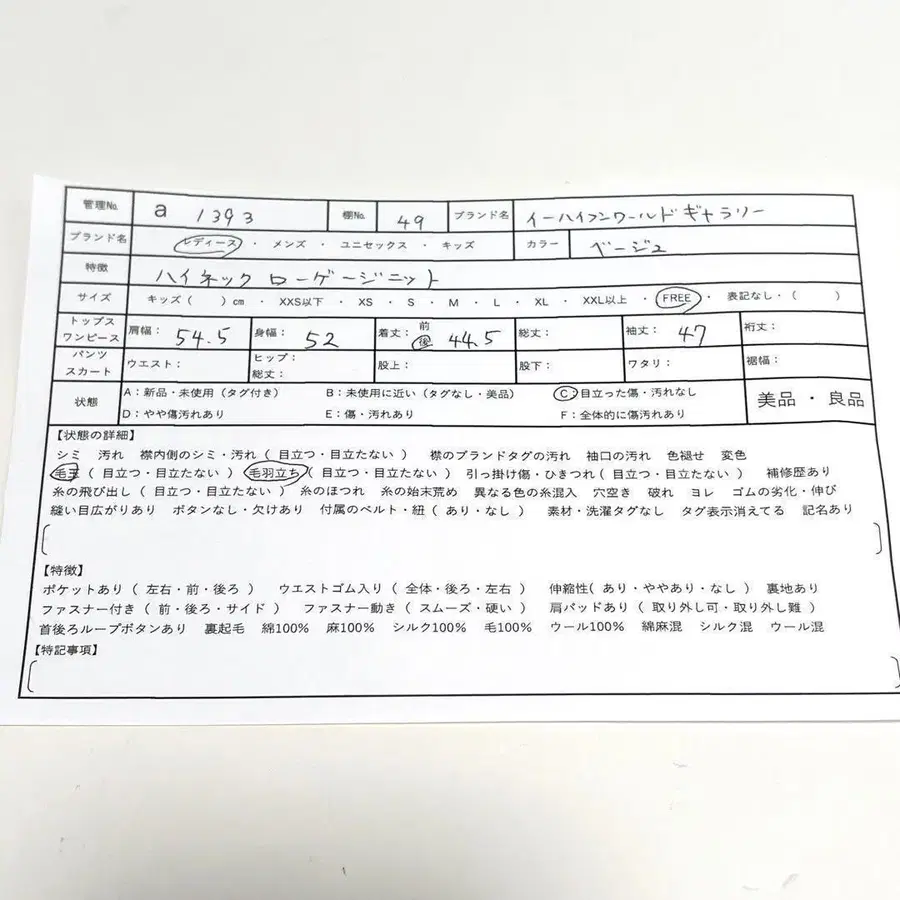 管理No. a 1393 棚No. 49 ブランド名 イーハイフンワールドギャラリー
ブランド名 レディース ・ メンズ ・ ユニセックス ・ キッズ カラー ベージュ
特徴 ハイネック ローゲージニット
サイズ キッズ ( ) cm ・ XXS以下 ・ XS ・ S ・ M ・ L ・ XL ・ XXL以上 ・ FREE ・ 表記なし・( )
トップス ワンピース 肩幅: 54.5 身幅: 52 着丈: 前 後 44.5 総丈: 袖丈: 47 裄丈:
パンツ スカート ウエスト: ヒップ: 総丈: 股上: 股下: ワタリ: 裾幅:
状態 A:新品・未使用(タグ付き) B:未使用に近い(タグなし・美品) C:目立った傷・汚れなし 美品 ・ 良品
D:やや傷汚れあり E:傷・汚れあり F:全体的に傷汚れあり
【状態の詳細】
シミ 汚れ 襟内側のシミ・汚れ( 目立つ・目立たない ) 襟のブランドタグの汚れ 袖口の汚れ 色褪せ 変色
毛玉 ( 目立つ・目立たない ) 毛羽立ち ( 目立つ・目立たない ) 引っ掛け傷・ひきつれ( 目立つ・目立たない ) 補修歴あり
糸の飛び出し( 目立つ・目立たない ) 糸のほつれ 糸の始末荒め 異なる色の糸混入 穴空き 破れ ヨレ ゴムの劣化・伸び
縫い目広がりあり ボタンなし・欠けあり 付属のベルト・紐( あり・なし ) 素材・洗濯タグなし タグ表示消えてる 記名あり
【特徴】
ポケットあり( 左右・前・後ろ ) ウエストゴム入り( 全体・後ろ・左右 ) 伸縮性( あり・ややあり・なし ) 裏地あり
ファスナー付き( 前・後ろ・サイド ) ファスナー動き( スムーズ・硬い ) 肩パッドあり( 取り外し可・取り外し難 )
首後ろループボタンあり 裏起毛 綿100% 麻100% シルク100% 毛100% ウール100% 綿麻混 シルク混 ウール混
【特記事項】